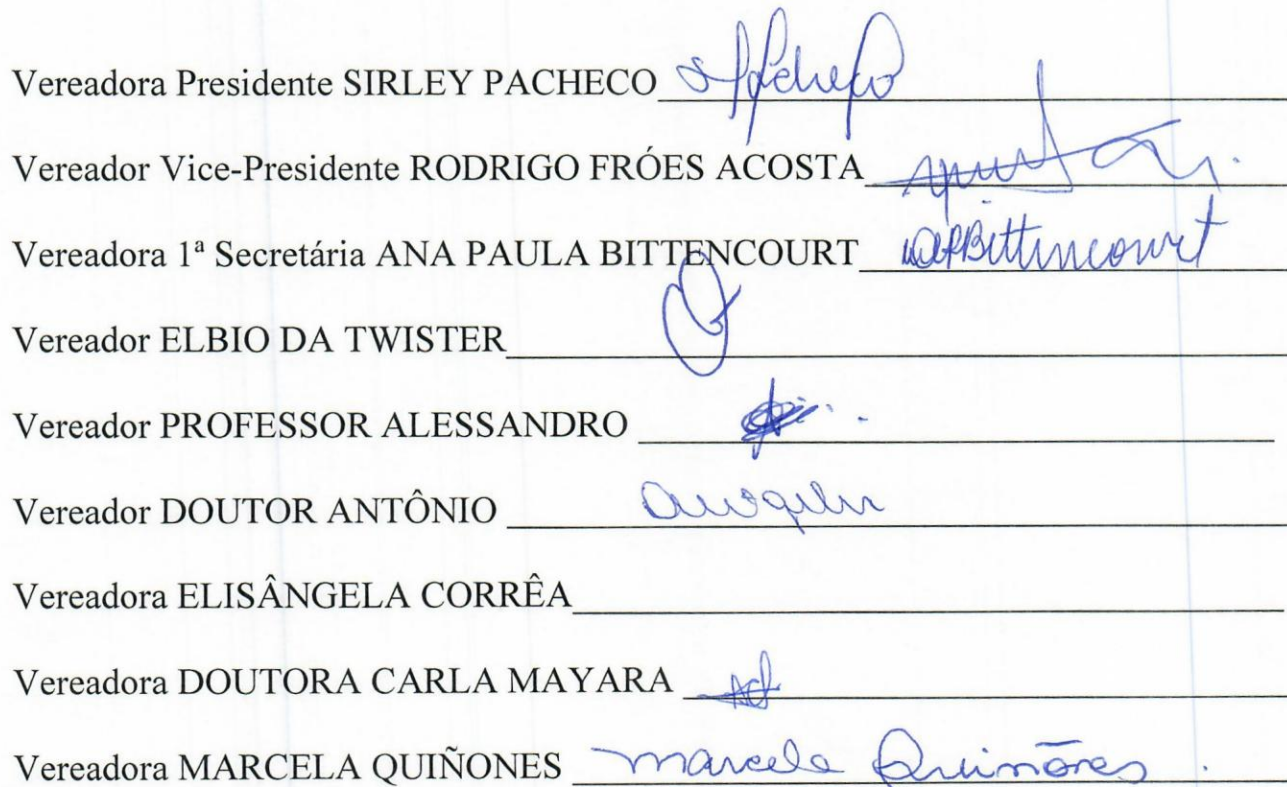 Vereadora Presidente SIRLEY PACHECO SPacheco
Vereador Vice-Presidente RODRIGO FRÓES ACOSTA
Vereadora 1ª Secretária ANA PAULA BITTENCOURT APBittencourt
Vereador ELBIO DA TWISTER
Vereador PROFESSOR ALESSANDRO
Vereador DOUTOR ANTÔNIO
Vereadora ELISÂNGELA CORRÊA
Vereadora DOUTORA CARLA MAYARA
Vereadora MARCELA QUIÑONES Marcela Quiñones